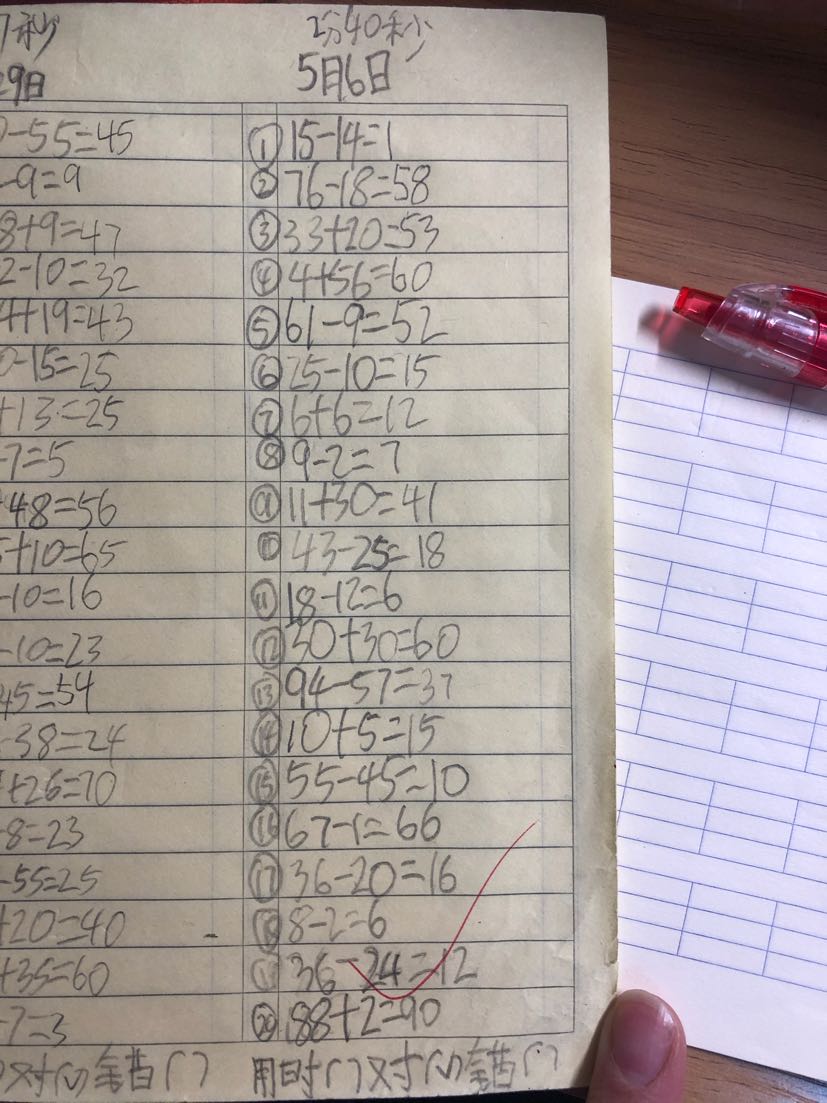 7秒
29日
0-55=45
-9=9
8+9=47
2-10=32
4+19=43
0-15=25
+13=25
-7=5
+48=56
5+10=65
-10=16
-10=23
45=54
-38=24
+26=70
-8=23
-55=25
+20=40
+35=60
-7=3
对( )错( )
2分40秒
5月6日
①15-14=1
②76-18=58
③33+20=53
④4+56=60
⑤61-9=52
⑥25-10=15
⑦6+6=12
⑧9-2=7
⑨11+30=41
⑩43-25=18
⑪18-12=6
⑫30+30=60
⑬94-57=37
⑭10+5=15
⑮55-45=10
⑯67-1=66
⑰36-20=16
⑱8-2=6
⑲36-24=12
⑳88+2=90
用时( )对( )错( )